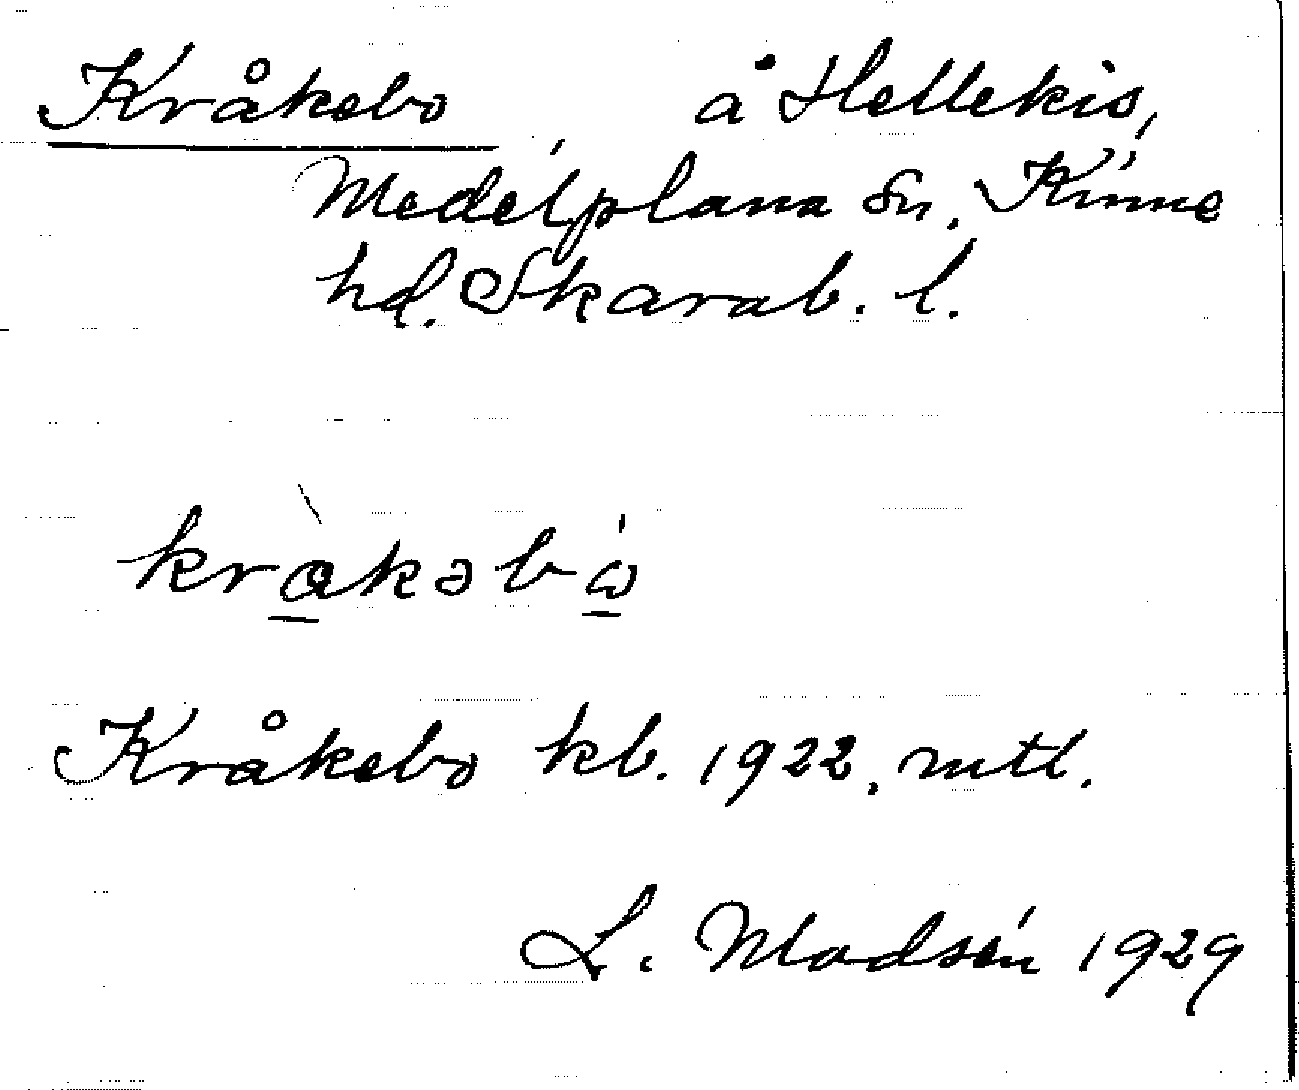 Kråkebo, å Hellekis,
Medelplana sn, Kinne
hd. Skarab. l.
kràkəbó
Kråkebo kb. 1922, mtl.
L. Modsén 1929